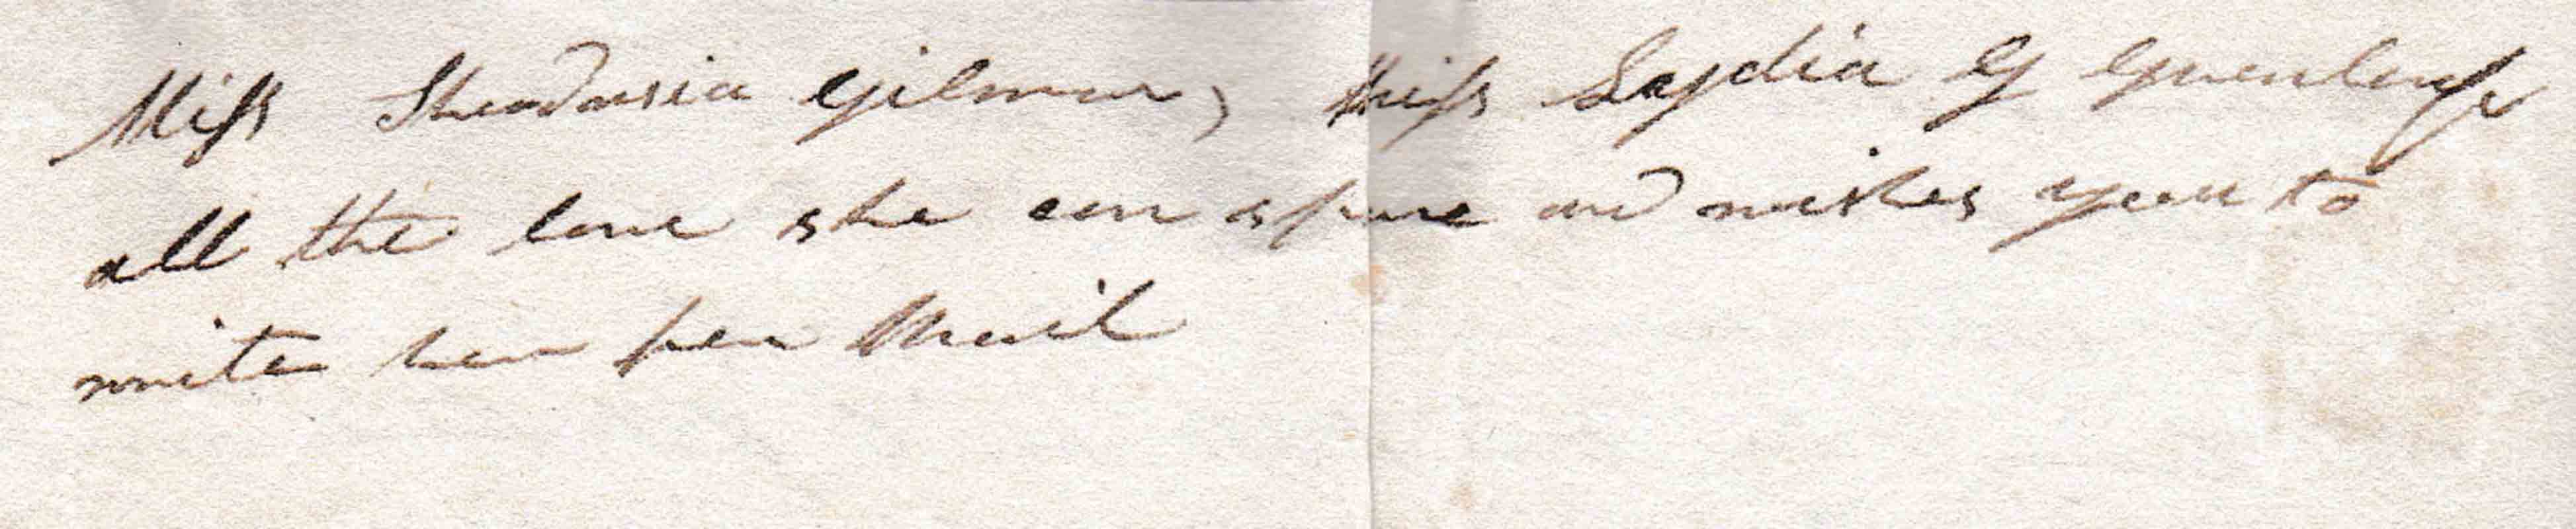 Miss Theodosia Gilman, Miss Lydia G Greenleaf
all the love she can spare and wishes you to
write her per Mail